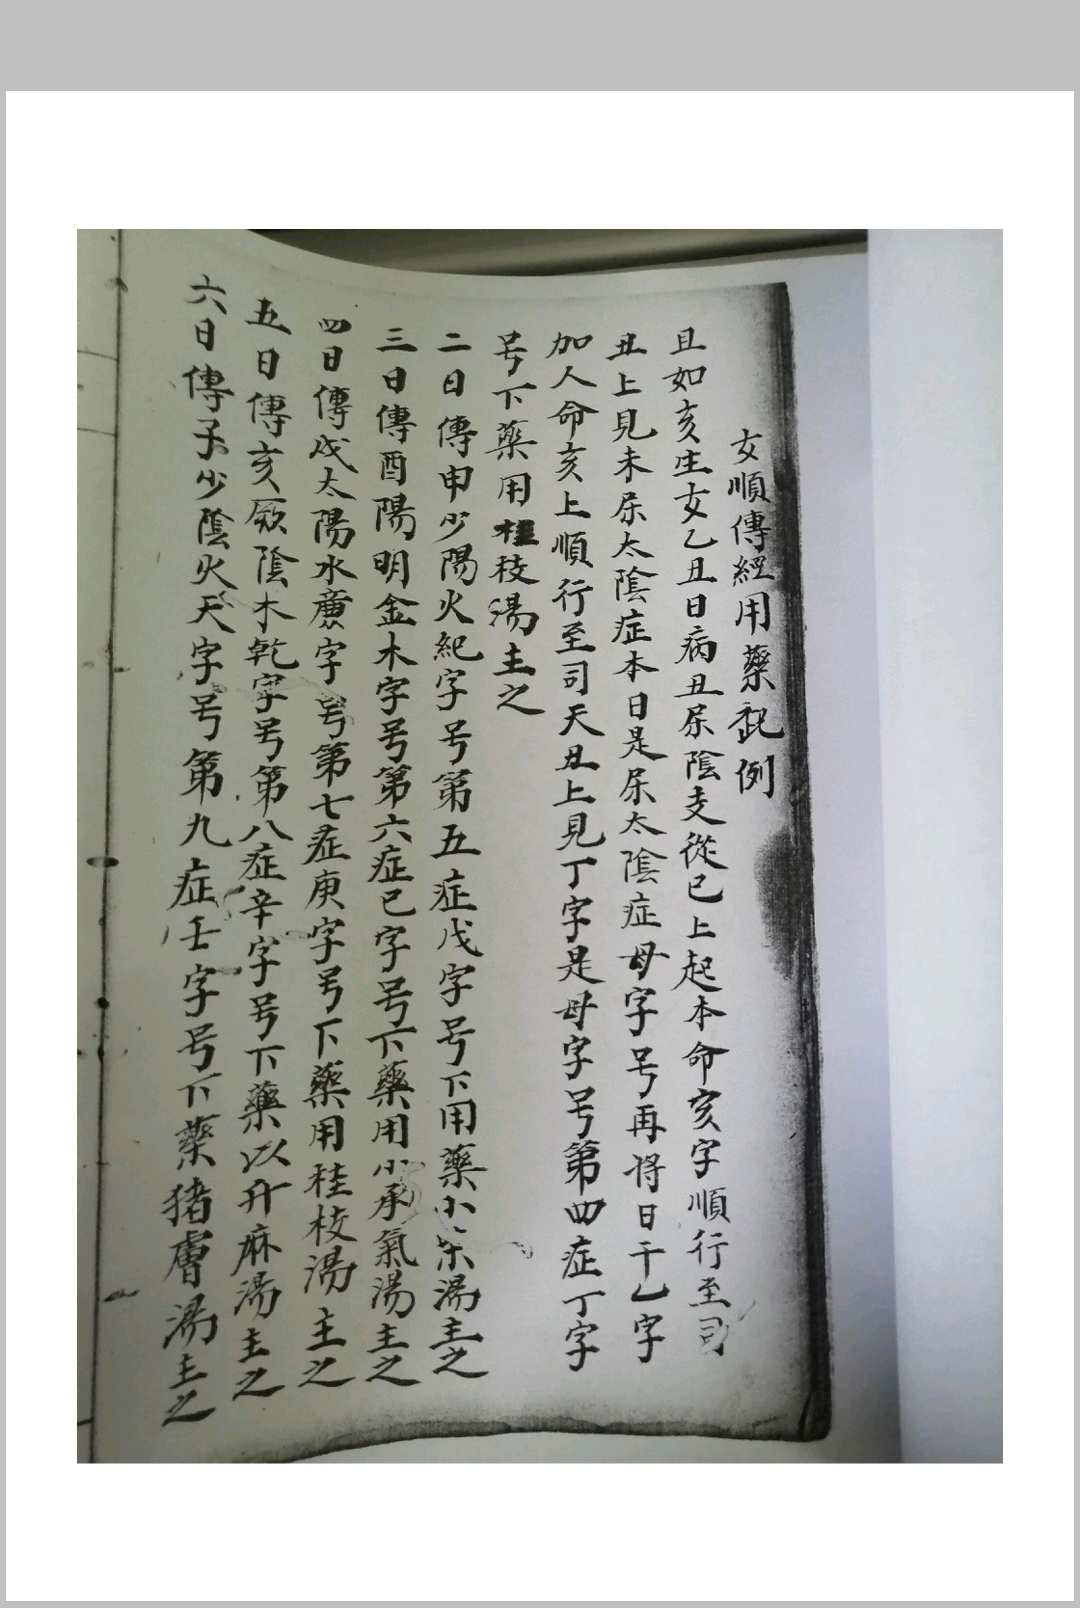 女順傳經用藥䂓例
且如亥生女乙丑日病丑屎陰支從巳上起本命亥字順行至司
丑上見未屎太陰症本日是屎太陰症母字号再将日干乙字
加人命亥上順行至司天丑上見丁字是母字号第四症丁字
号下藥用桂枝湯主之
二日傳申少陽火紀字号第五症戊字号下用藥小柴湯主之
三日傳酉陽明金木字号第六症己字号下藥用小承氣湯主之
四日傳戌太陽水廣字号第七症庚字号下藥用桂枝湯主之
五日傳亥厥陰木乾字号第八症辛字号下藥以升麻湯主之
六日傳子少陰火天字号第九症壬字号下藥猪膚湯主之